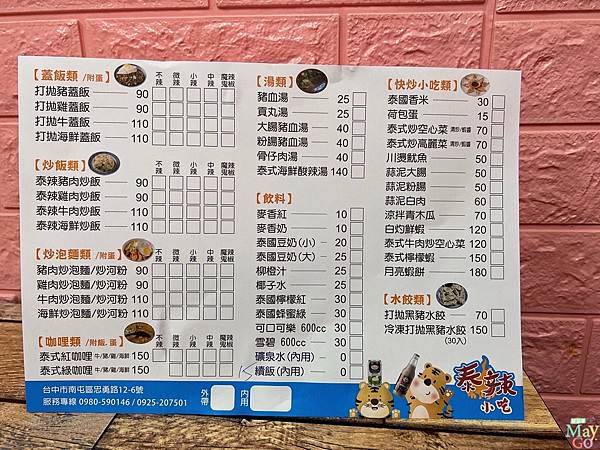 【蓋飯類 /附蛋】 不辣 微辣 小辣 中辣 魔辣鬼椒
打拋豬蓋飯 90
打拋雞蓋飯 90
打拋牛蓋飯 110
打拋海鮮蓋飯 110
【炒飯類】 不辣 微辣 小辣 中辣 魔辣鬼椒
泰辣豬肉炒飯 90
泰辣雞肉炒飯 90
泰辣牛肉炒飯 110
泰辣海鮮炒飯 110
【炒泡麵類 /附蛋】 不辣 微辣 小辣 中辣 魔辣鬼椒
豬肉炒泡麵/炒河粉 90
雞肉炒泡麵/炒河粉 90
牛肉炒泡麵/炒河粉 110
海鮮炒泡麵/炒河粉 110
【咖哩類 /附飯.蛋】 不辣 微辣 小辣 中辣 魔辣鬼椒
泰式紅咖哩 牛/豬/雞/海鮮 150
泰式綠咖哩 牛/豬/雞/海鮮 150
【湯類】
豬血湯 25
貢丸湯 25
大腸豬血湯 50
粉腸豬血湯 50
骨仔肉湯 40
泰式海鮮酸辣湯 140
【飲料】
麥香紅 10
麥香奶 10
泰國豆奶(小) 20
泰國豆奶(大) 25
柳橙汁 25
椰子水 25
泰國檸檬紅 30
泰國蜂蜜綠 30
可口可樂 600cc 30
雪碧 600cc 30
礦泉水(內用) 0
續飯(內用) 0
15
【快炒小吃類】
泰國香米 30
荷包蛋 15
泰式炒空心菜 清炒/蝦醬 70
泰式炒高麗菜 清炒/蝦醬 70
川燙魷魚 50
蒜泥大腸 50
蒜泥粉腸 50
蒜泥白肉 60
涼拌青木瓜 70
白灼鮮蝦 120
泰式牛肉炒空心菜 120
泰式檸檬蝦 150
月亮蝦餅 180
【水餃類】
打拋黑豬水餃 70
冷凍打拋黑豬水餃 150
(30入)
台中市南屯區忠勇路12-6號
服務專線 0980-590146 / 0925-207501
外帶
內用
泰辣
小吃
May
GO